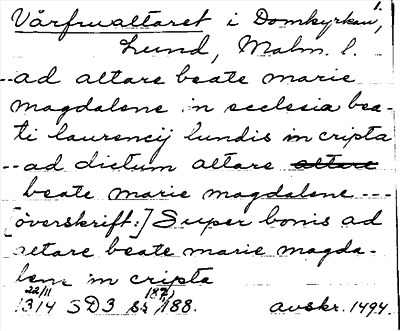 Vårfrualtaret i Domkyrkan, 1.
Lund, Malm. l.
--ad altare beate marie
magdalene in ecclesia bea-
ti laurencij lundis in cripta
--ad dictum altare altare
beate marie magdalene ---
[överskrift:] Super bonis ad
altare beate marie magda-
lene in cripta
22/11
1314 SD3 s. 188. avskr. 1494.